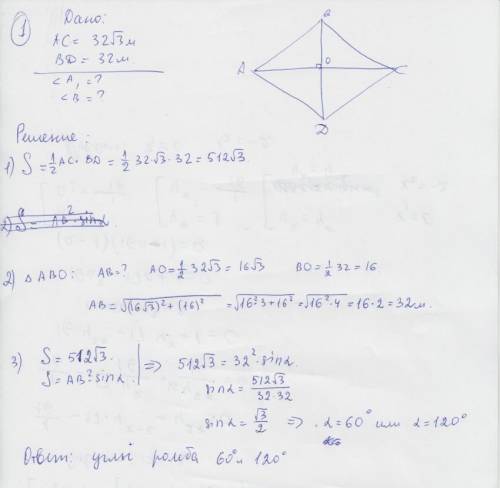 1
Дано:
AC = 32√3 м
BD = 32 м
<A, = ?
<B = ?
B
A
O
C
D
Решение:
1) S = 1/2 AC · BD = 1/2 32·√3·32 = 512√3
2) △ABO: AB = ? AO = 1/2 32√3 = 16√3 BO = 1/2 32 = 16
AB = √(16√3)² + (16)² = √16²·3 + 16² = √16²·4 = 16·2 = 32 м.
3) S = 512√3
S = AB²·sinα
=> 512√3 = 32²·sinα
sinα = 512√3/32·32
sinα = √3/2 => α = 60° или α = 120°
Ответ: углы ромба 60° и 120°